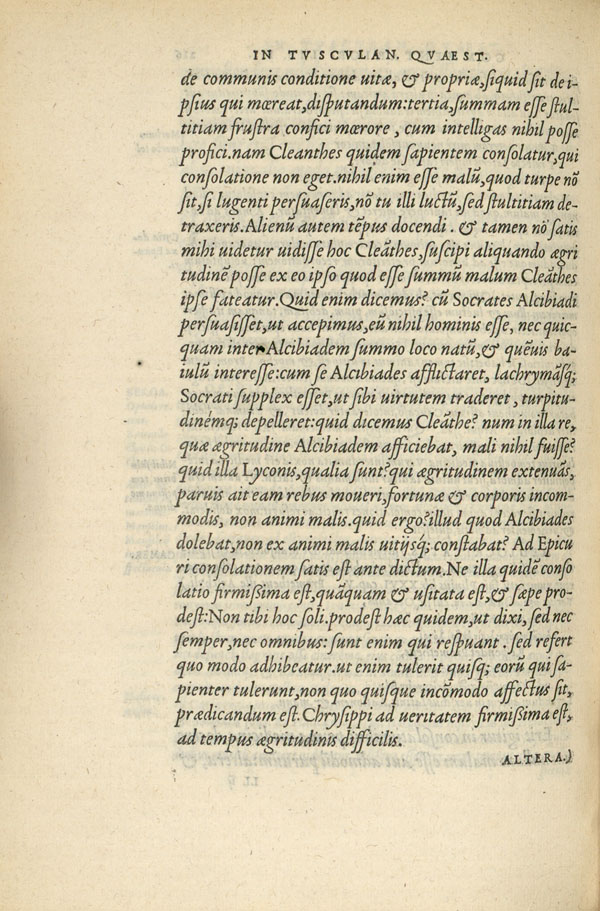 IN TVSCVLAN. QVAEST.
de communis conditione uitæ, & propriæ, siquid sit de i-
psius qui mœreat, disputandum: tertia, summam esse stul-
titiam frustra confici mœrore, cum intelligas nihil posse
profici. nam Cleanthes quidem sapientem consolatur, qui
consolatione non eget. nihil enim esse malũ, quod turpe nõ
sit, si lugenti persuaseris, nõ tu illi luctũ, sed stultitiam de-
traxeris. Alienũ autem tẽpus docendi. & tamen nõ satis
mihi uidetur uidisse hoc Cleãthes, suscipi aliquando ægri
tudinẽ posse ex eo ipso quod esse summũ malum Cleãthes
ipse fateatur. Quid enim dicemus? cũ Socrates Alcibiadi
persuasisset, ut accepimus, eũ nihil hominis esse, nec quic-
quam inter Alcibiadem summo loco natũ, & quẽuis ba-
iulũ interesse: cum se Alcibiades afflictaret, lachrymãsq;
Socrati supplex esset, ut sibi uirtutem traderet, turpitu-
dinémq; depelleret: quid dicemus Cleãthe? num in illa re,
quæ ægritudine Alcibiadem afficiebat, mali nihil fuisse?
quid illa Lyconis, qualia sunt? qui ægritudinem extenuãs,
paruis ait eam rebus moueri, fortunæ & corporis incom-
modis, non animi malis. quid ergo? illud quod Alcibiades
dolebat, non ex animi malis uitijsq; constabat? Ad Epicu
ri consolationem satis est ante dictum. Ne illa quidẽ conso
latio firmissima est, quãquam & usitata est, & sæpe pro-
dest: Non tibi hoc soli. prodest hæc quidem, ut dixi, sed nec
semper, nec omnibus: sunt enim qui respuant. sed refert
quo modo adhibeatur. ut enim tulerit quisq; eorũ qui sa-
pienter tulerunt, non quo quisque incõmodo affectus sit,
prædicandum est. Chrysippi ad ueritatem firmissima est,
ad tempus ægritudinis difficilis.
ALTERA.)